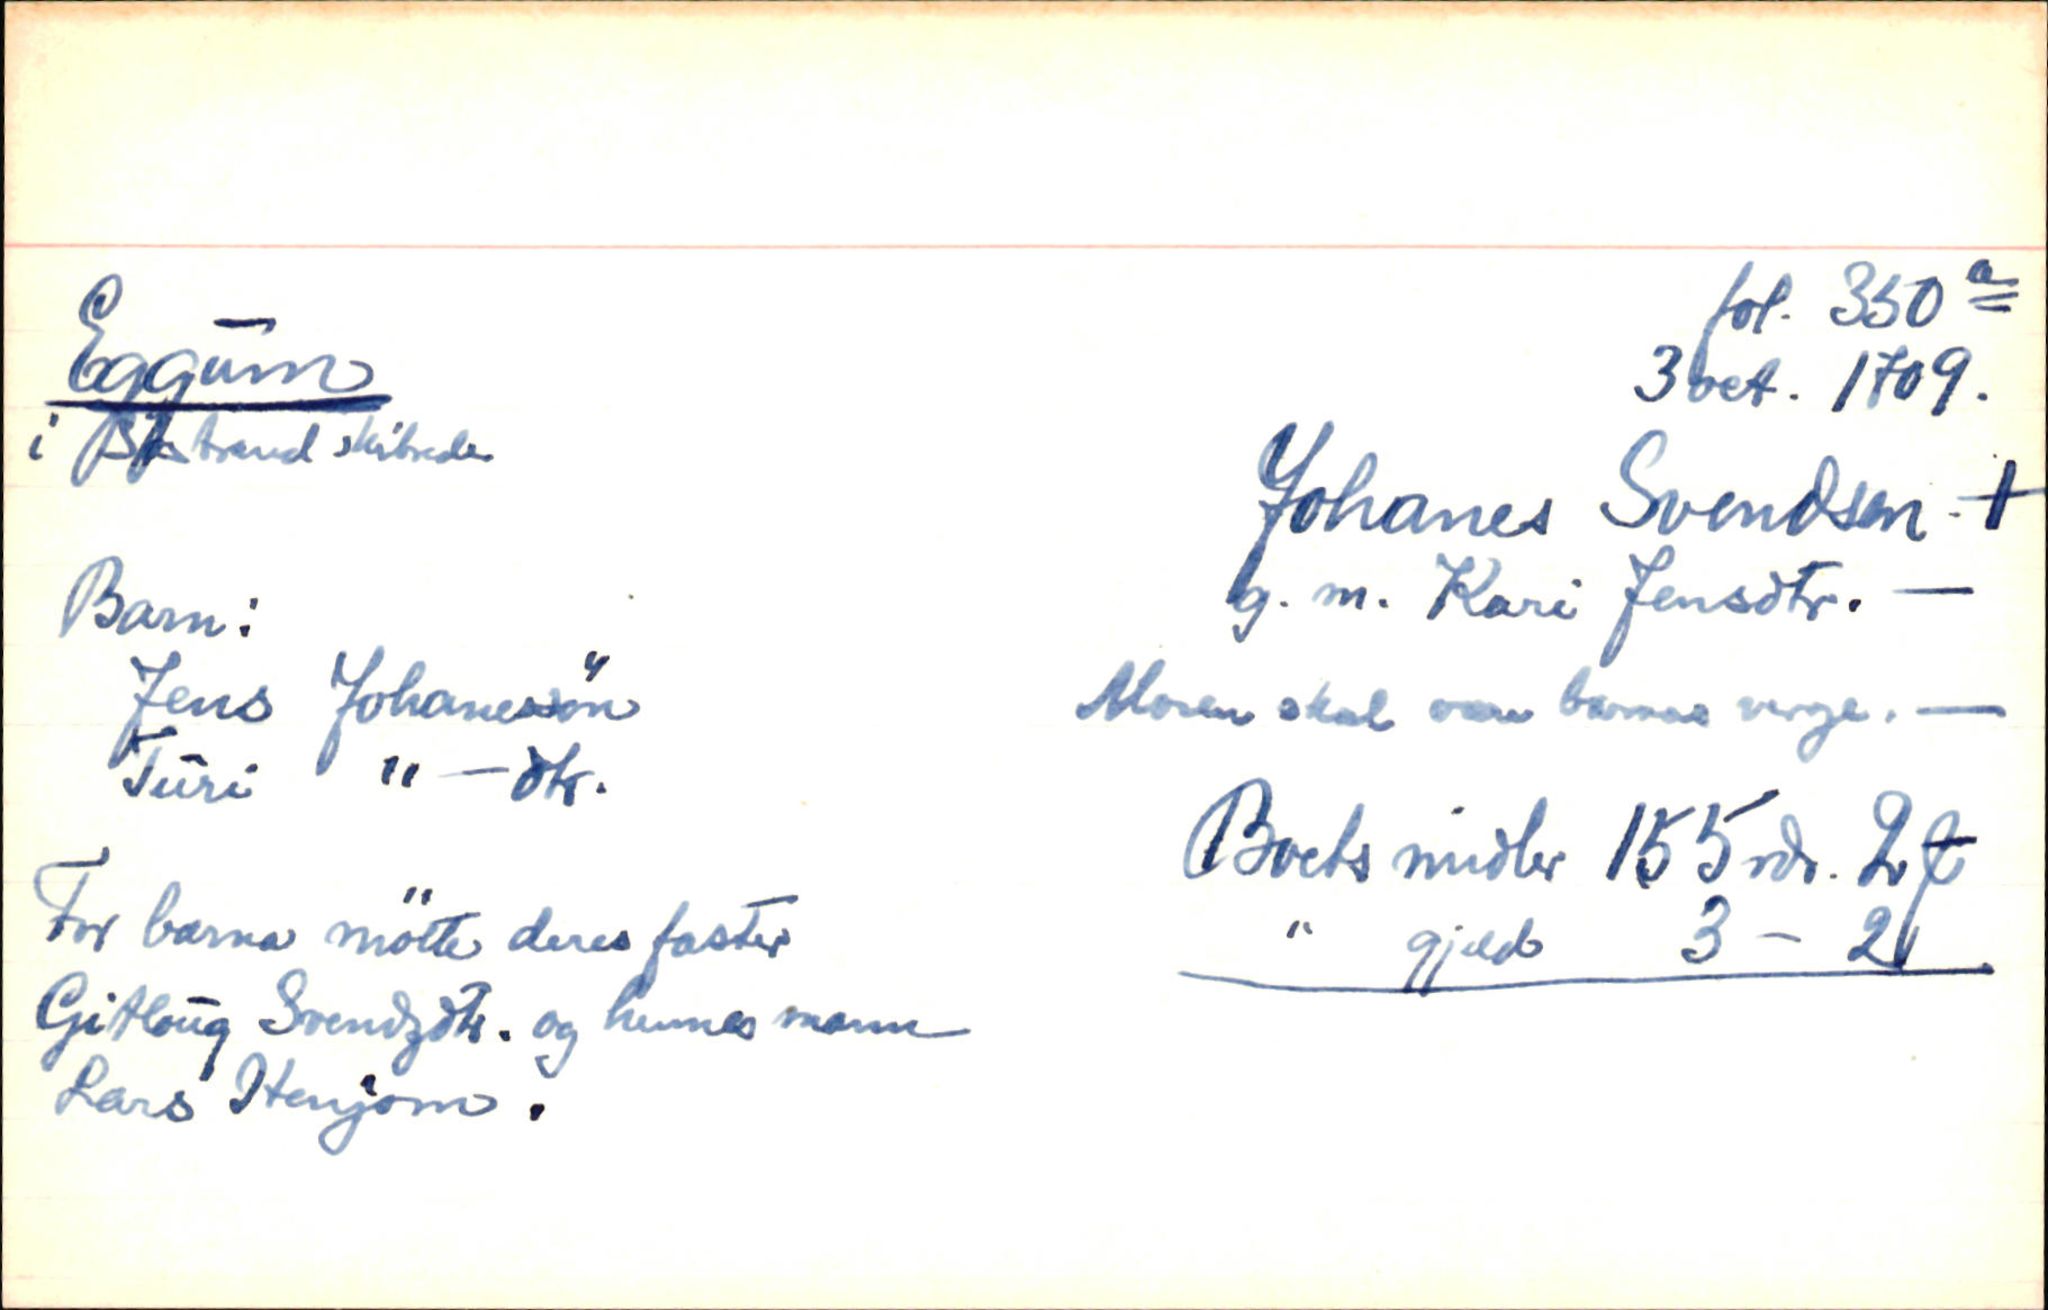 fol. 350 a
3 oct. 1709.
Eggum
i strand skibrede
Johanes Svendsen +
g. m. Kari Jensdtr. —
Barn:
Jens Johanessön
Turi " — dtr.
Moren skal være barnas verge. —
Boets midler 155 rdr. 2 ₶
" gjeld 3 – 2
For barna mötte deres faster
Gitloug Svendzdtr. og hennes mann
Lars Henjom.